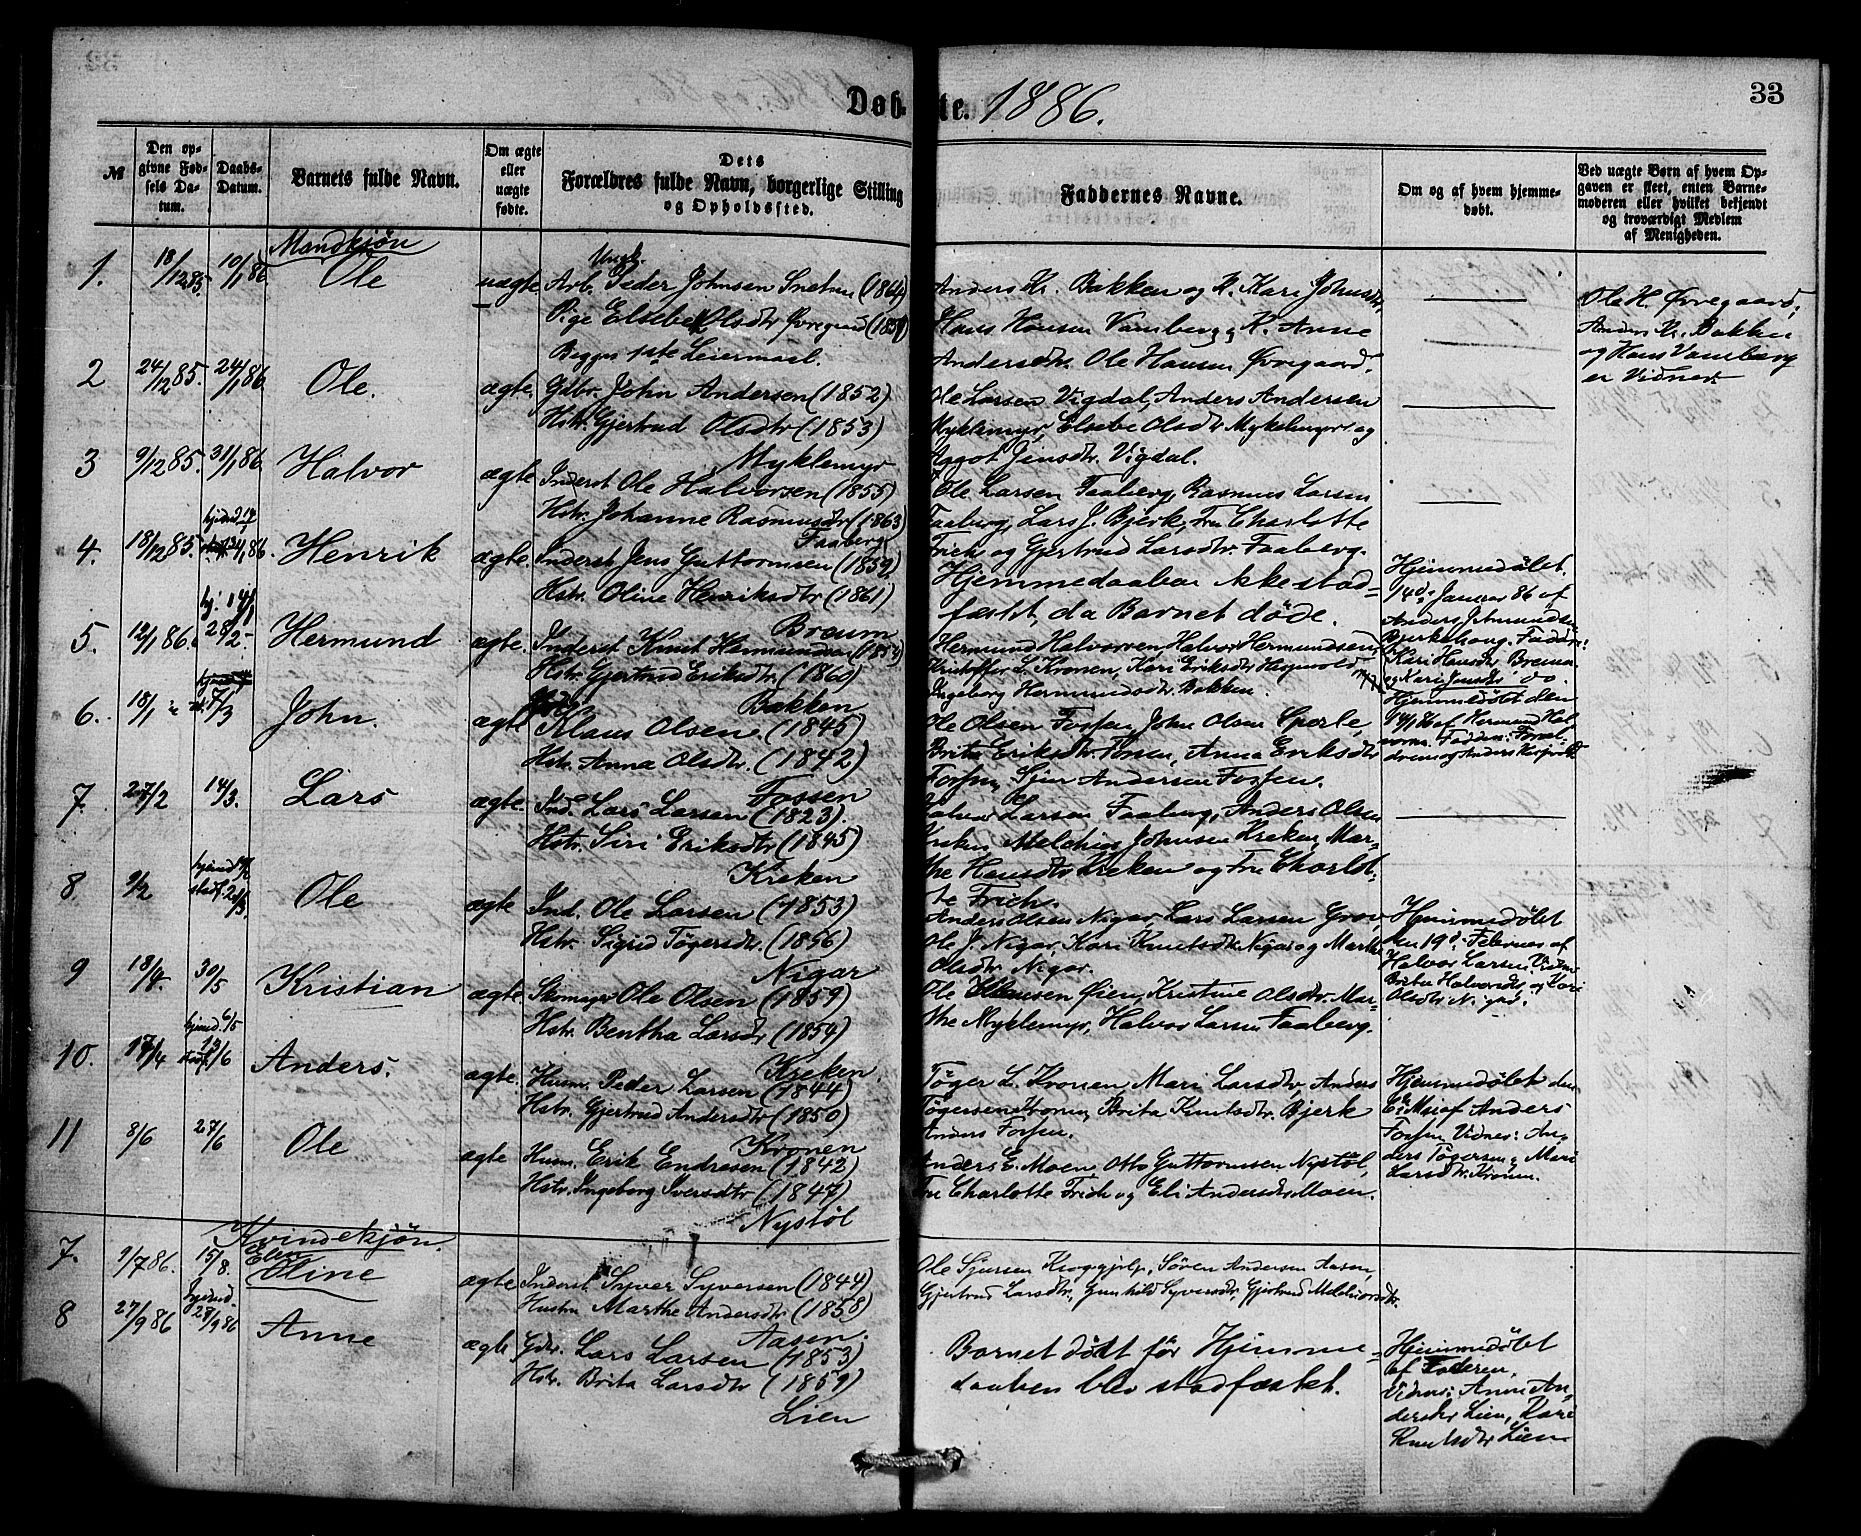 33
Døbte. 1886.
№
Den opgivne Fødsels Datum.
Daabs-Datum.
Barnets fulde Navn.
Om ægte eller uægte fødte.
Dets Forældres fulde Navn, borgerlige Stilling og Opholdssted.
Faddernes Navne.
Om og af hvem hjemmedøbt.
Ved uægte Børn af hvem Opgaven er skeet, enten Barnemoderen eller hvilket bekjendt og troværdigt Medlem af Menigheden.
Mandkjøn
1. 18/12 85. 10/1 86 Ole uægte
Ungk.
Arb. Peder Johnsen (1864)
Pige Elsebe Olsdtr Øvregaard
Begges 1ste Leiermaal.
Anders Kr. Bakken og K. Kari Johnsdtr
Hans Hansen Vamberg, K. Anne
Andersdtr. Ole Hansen Øvregaard.
Ole H. Øvregaard,
Anders Kr. Bakken
og Hans Vamberg
er Vidner.
2 24/12 85. 24/1 86 Ole. ægte.
Gbr. John Andersen (1852)
Hstr. Gjertrud Olsdtr (1853)
Myklemyr
Ole Larsen Vigdal, Anders Andersen
Myklemyr, Elsebe Olsdtr Myklemyr og
Aagot Jensdtr. Vigdal.
3 9/12 85. 31/1 86. Halvor ægte
Inderst Ole Halvorsen (1855)
Hstr. Johanne Rasmusdtr (1863)
Faaberg
Ole Larsen Faaberg, Rasmus Larsen
Faaberg, Lars J. Bjerk, Fru Charlotte
Frich og Gjertrud Larsdtr. Faaberg.
4. 18/12 85. 86. Henrik ægte.
Inderst Jens Guttormsen (1859)
Hstr. Oline Henriksdtr (1861)
Breum
Hjemmedaaben ikke stad-
fæstet, da Barnet døde.
Hjemmedøbt
14d: Januar 86 af
Anders
Bjerkehaug. Faddere:
Kari Hansdtr Breum
og Kari Jensdtr do.
5. 12/1 86. hj: 14/1 28/2 Hermund ægte.
Inderst Knut Hermundsen
Hstr. Gjertrud Eriksdtr (1860)
Bakken
Hermund Halvorsen, Halvor Hermundsen,
Kristoffer L. Kronen, Kari Eriksdtr
Ingeborg Hermundsdtr. Bakken.
Hjemmedøbt den
14/1 86 af Hermund Hal-
vorsen. Faddere: Foræl-
drene og Anders
6. 18/1 7/3 John. ægte
Klaus Olsen (1845)
Hstr. Anna Olsdtr. (1842)
Fossen
Ole Olsen Fossen, John Olsen Sperle,
Brita Eriksdtr Fossen, Anna Eriksdtr
Fossen, Sjur Andersen Fossen.
7. 27/2 14/3. Lars ægte.
Ind. Lars Larsen (1823).
Hstr. Siri Eriksdtr (1845)
Kreken
Halvor Larsen Faaberg, Anders Olsen
Kreken, Melchior Johnsen Kreken, Mar-
the Hansdtr Kreken og Fru Charlot-
te Frich.
8. 9/2 21/3 Ole ægte
Ind. Ole Larsen (1853)
Hstr. Sigrid Tøgersdtr. (1856)
Nigar
Anders Olsen Nigar, Lars Larsen Grov,
Ole J. Nigar, Kari Knutsdtr. Nigar og Marthe
Olsdtr Nigar.
Hjemmedøbt
den 19d: Februar af
Halvor Larsen. Vidner
Brita Halvorsdtr og Kari
Olsdtr Nigar.
9 18/4. 30/5 Kristian ægte
Skomager Ole Olsen (1859)
Hstr. Bentha Larsdtr (1854)
Kreken
Ole Hansen Øien, Kristine Olsdtr. Mar-
the Myklemyr, Halvor Larsen Faaberg.
10. 17/4 hjemd. 6/5 13/6 Anders. ægte.
Husm. Peder Larsen (1844)
Hstr. Gjertrud Andersdtr (1850)
Kronen
Tøger L. Kronen, Mari Larsdtr, Anders
Tøgersen Kronen, Brita Knutsdtr. Bjerk
Anders Fossen.
Hjemmedøbt den
6te Mai af Anders
Fossen, Vidner: An-
ders Tøgersen, Mari
Larsdtr. Kronen.
11 8/6 27/6 Ole ægte
Husm. Erik Endresen (1842)
Hstr. Ingeborg Iversdtr (1847)
Nystøl
Anders E. Moen, Otto Guttormsen Nystøl,
Fru Charlotte Frich og Eli Andersdtr Moen.
Kvindekjøn.
7. 9/7 86. 15/8. Elen Oline ægte
Inderst Syver Syversen (1844)
Hustru Marthe Andersdtr (1858)
Aasen.
Ole Sjursen Kroggjelp, Søren Andersen Aasen,
Gjertrud Larsdtr., Gunhild Syversdtr, Gjertrud Melchiorsdtr.
8 27/9 86 hjemd. 27/9 86 Anne ægte
Gbr. Lars Larsen (1853)
Hstr. Brita Larsdtr (1859)
Lien
Barnet dödt för Hjemme-
daaben blev stadfæstet.
Hjemmedöbt
af Faderen,
Vidner: Anne An-
dersdtr Lien, Kari
Knutsdtr Lien